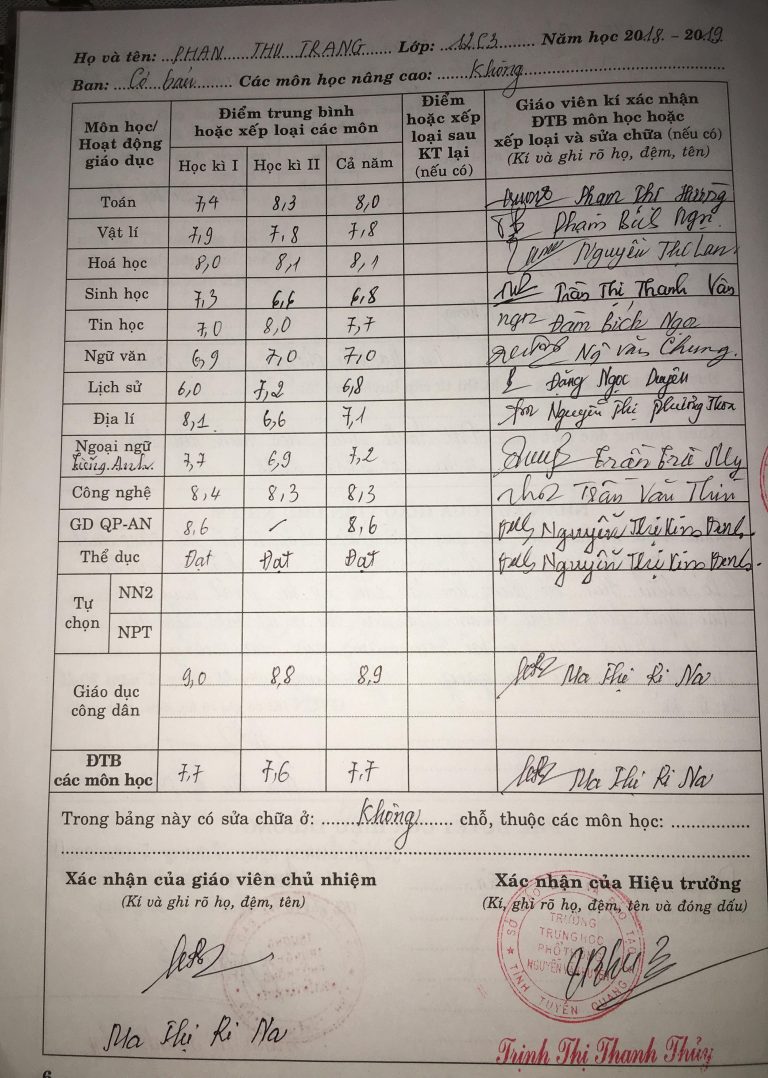 Họ và tên: PHAN THU TRANG Lớp: 12C3 Năm học 2018 - 2019
Ban: Cơ bản Các môn học nâng cao: Không
Môn học/ Hoạt động giáo dục Điểm trung bình hoặc xếp loại các môn Điểm hoặc xếp loại sau KT lại (nếu có) Giáo viên kí xác nhận ĐTB môn học hoặc xếp loại và sửa chữa (nếu có) (Kí và ghi rõ họ, đệm, tên)
Học kì I Học kì II Cả năm
Toán 7,4 8,3 8,0 Phạm Thị Hường
Vật lí 7,9 7,8 7,8 Phạm Bích Ngọc
Hoá học 8,0 8,1 8,1 Nguyễn Thị Lan
Sinh học 7,3 6,6 6,8 Trần Thị Thanh Vân
Tin học 7,0 8,0 7,7 Đàm Bích Ngọc
Ngữ văn 6,9 7,0 7,0 Ngô Văn Chung.
Lịch sử 6,0 7,2 6,8 Đặng Ngọc Duyên
Địa lí 8,1 6,6 7,1 Nguyễn Thị Phương Thoa
Ngoại ngữ Tiếng.Anh. 7,7 6,9 7,2 Trần Trà My
Công nghệ 8,4 8,3 8,3 Trần Văn Thìn
GD QP-AN 8,6 / 8,6 Nguyễn Thị Kim
Thể dục Đạt Đạt Đạt Nguyễn Thị Kim
Tự chọn NN2
NPT
Giáo dục công dân 9,0 8,8 8,9 Ma Thị Ri Na
ĐTB các môn học 7,7 7,6 7,7 Ma Thị Ri Na
Trong bảng này có sửa chữa ở: Không chỗ, thuộc các môn học:
Xác nhận của giáo viên chủ nhiệm Xác nhận của Hiệu trưởng
(Kí và ghi rõ họ, đệm, tên) (Kí, ghi rõ họ, đệm, tên và đóng dấu)
TRƯỜNG
TRUNG HỌC
PHỔ THÔNG
TỈNH TUYÊN QUANG
Ma Thị Ri Na
Trịnh Thị Thanh Thủy
6